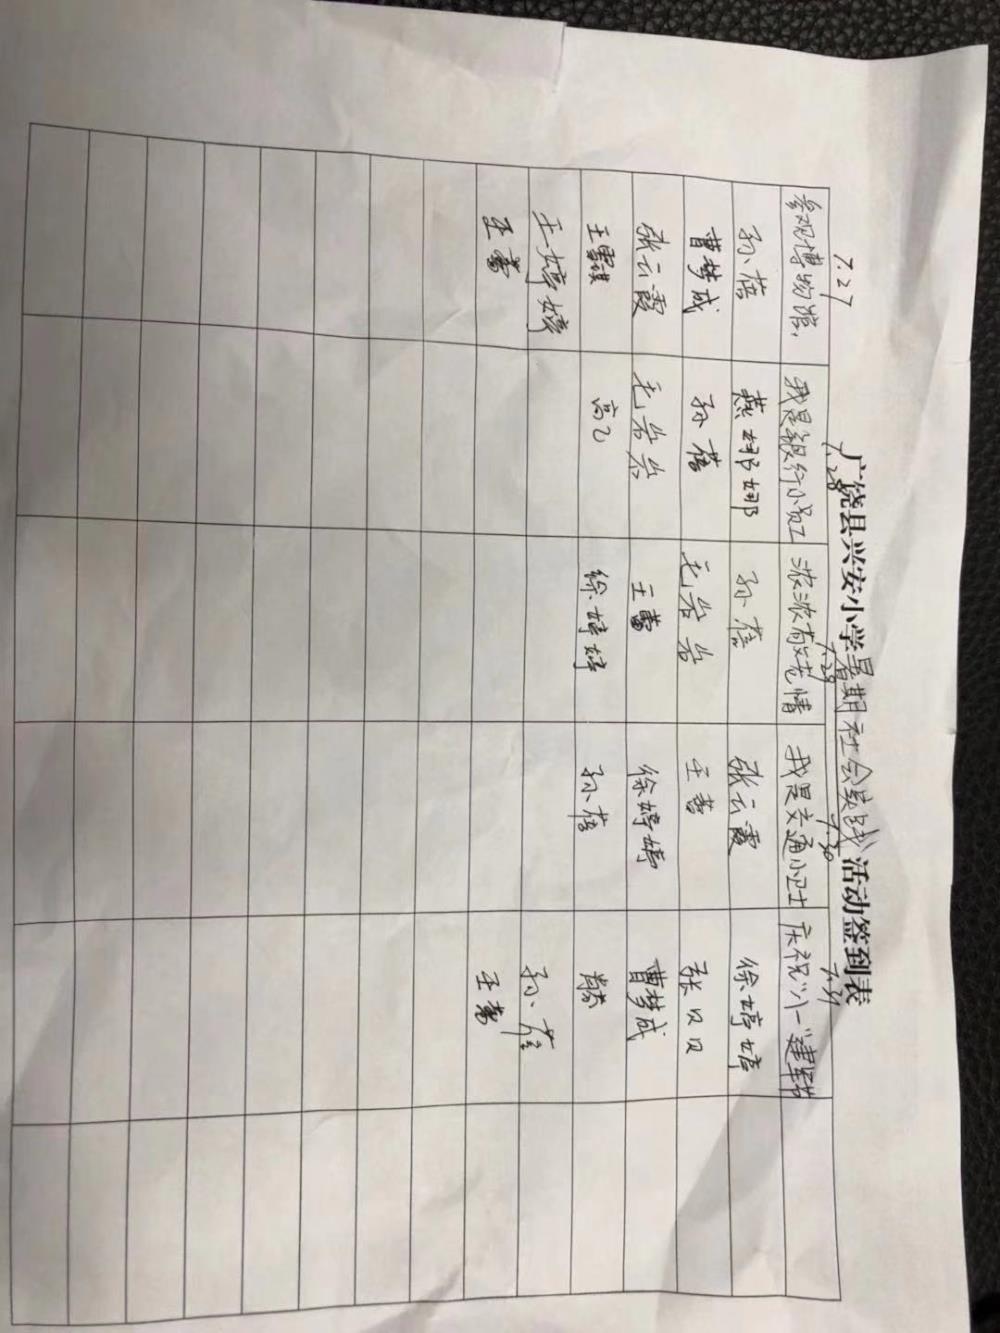 广饶县兴安小学暑期社会实践活动签到表
7.27 7.28 7.29 7.30 7.31
参观博物馆 我是银行小员工 浓浓敬老情 我是交通小卫士 庆祝"八一"建军节
孙蓓 燕娜娜 孙蓓 张云霞 徐婷婷
曹梦成 孙蓓 毛岩岩 王蕾 张贝贝
张云霞 毛岩岩 王蕾 徐婷婷 曹梦成
王雪琪 高飞 徐婷婷 孙蓓
王婷婷 孙蓓
王蕾 王蕾